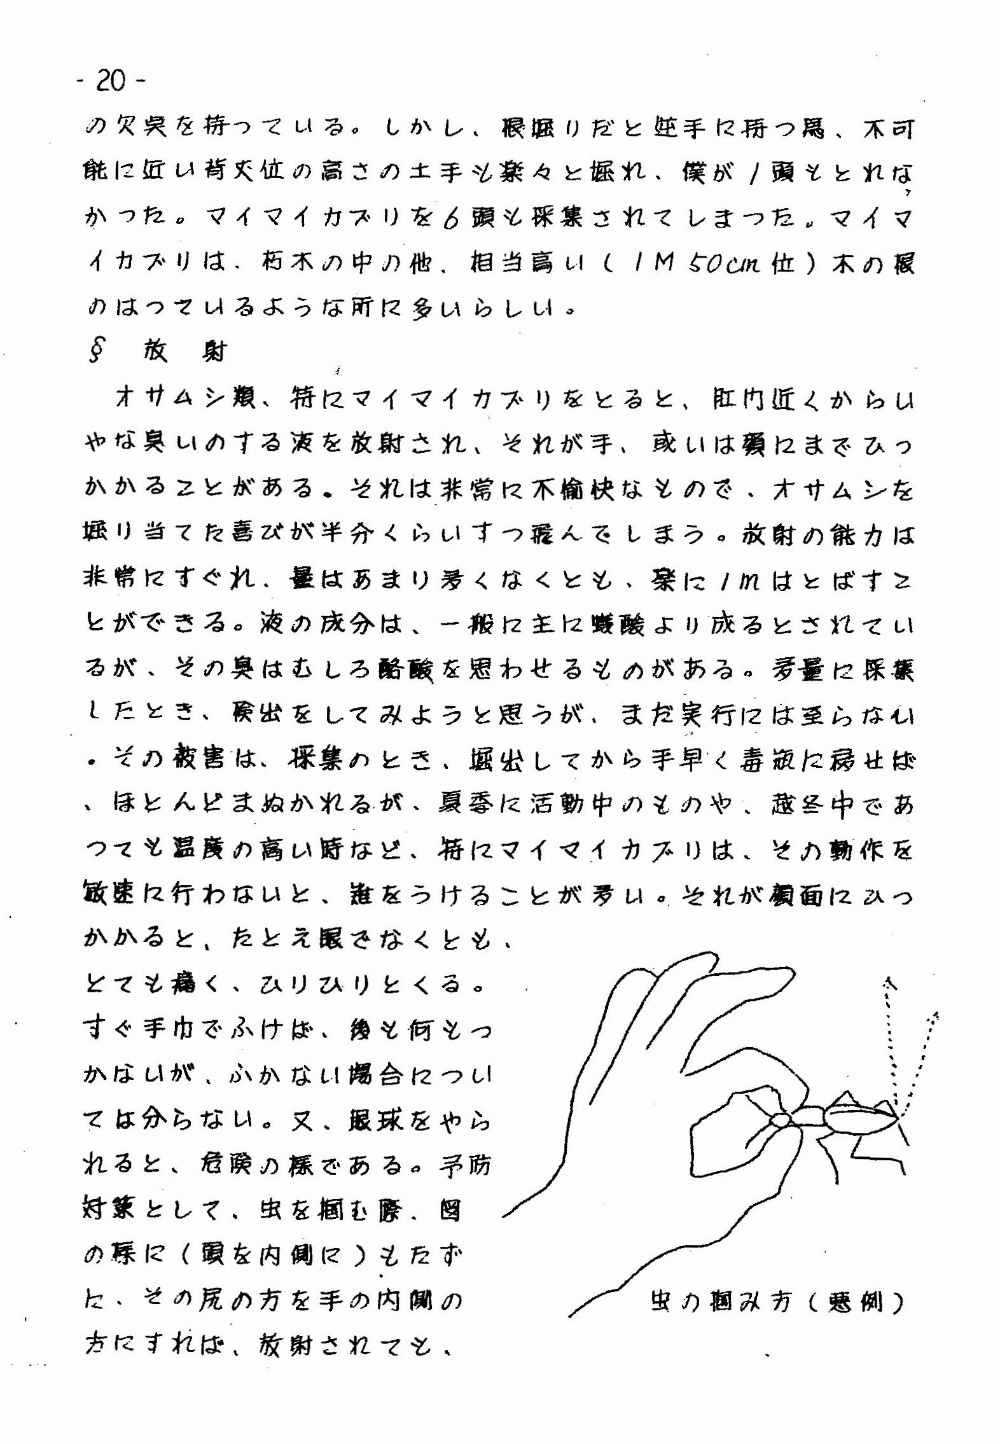 - 20 -
の欠点を持っている。しかし、根堀りだと逆手に持つ為、不可
能に近い背丈位の高さの土手も楽々と堀れ、僕が1頭もとれな
かった。マイマイカブリを6頭も採集されてしまつた。マイマ
イカブリは、朽木の中の他、相当高い(1M50cm位)木の根
のはつているような所に多いらしい。
§ 放射
オサムシ類、特にマイマイカブリをとると、肛門近くからい
やな臭いのする液を放射され、それが手、或いは顔にまでひっ
かかることがある。それは非常に不愉快なもので、オサムシを
堀り当てた喜びが半分くらいすつ飛んでしまう。放射の能力は
非常にすぐれ、量はあまり多くなくとも、楽に1mはとばすこ
とができる。液の成分は、一般に主に蟻酸より成るとされてい
るが、その臭はむしろ酪酸を思わせるものがある。多量に採集
したとき、検出をしてみようと思うが、まだ実行には至らない
。その被害は、採集のとき、堀出してから手早く毒瓶に移せば
、ほとんどまぬかれるが、夏季に活動中のものや、越冬中であ
つても温度の高い時など、特にマイマイカブリは、その動作を
敏速に行わないと、難をうけることが多い。それが顔面にひっ
かかると、たとえ眼でなくとも、
とても痛く、ひりひりとくる。
すぐ手巾でふけば、後も何もつ
かないが、ふかない場合につい
ては分らない。又、眼球をやら
れると、危険の様である。予防
対策として、虫を掴む際、図
の様に(頭を内側に)もたず
に、その尻の方を手の内側の
方にすれば、放射されても、
虫の掴み方(悪例)